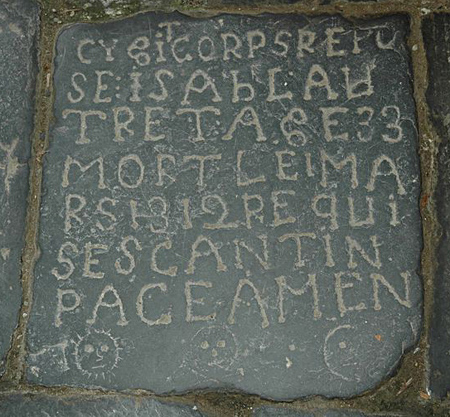 CY GIT CORPS REPO
SE: ISABLAU
TRETAGE 33
MORT LE I MA
RS 1312 REQUI
SESCANT IN
PACE AMEN